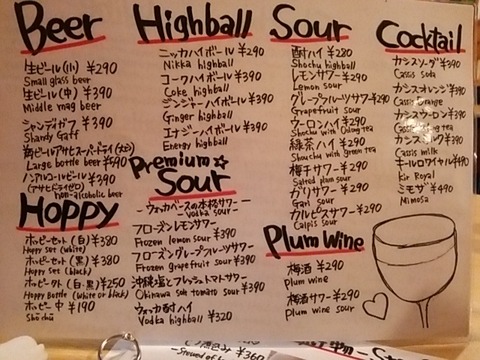 Beer
生ビール(小) ¥290
Small glass beer
生ビール(中) ¥390
Middle mag beer
シャンディガフ ¥390
Shandy Gaff
瓶ビール アサヒスーパードライ(大)
Large bottle beer ¥640
ノンアルコールビール ¥340
(アサヒドライゼロ)
non-alcoholic beer
Hoppy
ホッピーセット(白) ¥380
Hoppy set (white)
ホッピーセット(黒) ¥380
Hoppy set (black)
ホッピー外(白・黒) ¥250
Hoppy Bottle (white or black)
ホッピー中 ¥190
Shō chū
Highball
ニッカハイボール ¥290
Nikka highball
コークハイボール ¥390
Coke highball
ジンジャーハイボール ¥390
Ginger highball
エナジーハイボール ¥390
Energy highball
Premium☆
Sour
-ウォッカベースの本格サワー-
vodka sour
フローズンレモンサワー
Frozen lemon sour ¥390
フローズングレープフルーツサワー
Frozen grapefruit sour ¥390
沖縄塩とフレッシュトマトサワー
Okinawa salt tomato sour ¥390
ウォッカ酎ハイ
Vodka highball ¥320
Sour
酎ハイ ¥280
Shochu highball
レモンサワー ¥290
Lemon sour
グレープフルーツサワー ¥290
Grapefruit Sour
ウーロンハイ ¥290
Shochu with Oolong tea
緑茶ハイ ¥290
Shochu with green tea
梅干サワー ¥290
Salted plum sour
ガリサワー ¥290
Gari sour
カルピスサワー ¥290
Calpis sour
Plum Wine
梅酒 ¥290
Plum wine
梅酒サワー ¥290
Plum wine sour
Cocktail
カシスソーダ ¥390
Cassis soda
カシスオレンジ ¥390
Cassis Orange
カシスウーロン ¥390
Cassis tea
カシスミルク ¥390
Cassis milk
キールロワイヤル ¥490
Kir Royal
ミモザ ¥490
Mimosa
¥360